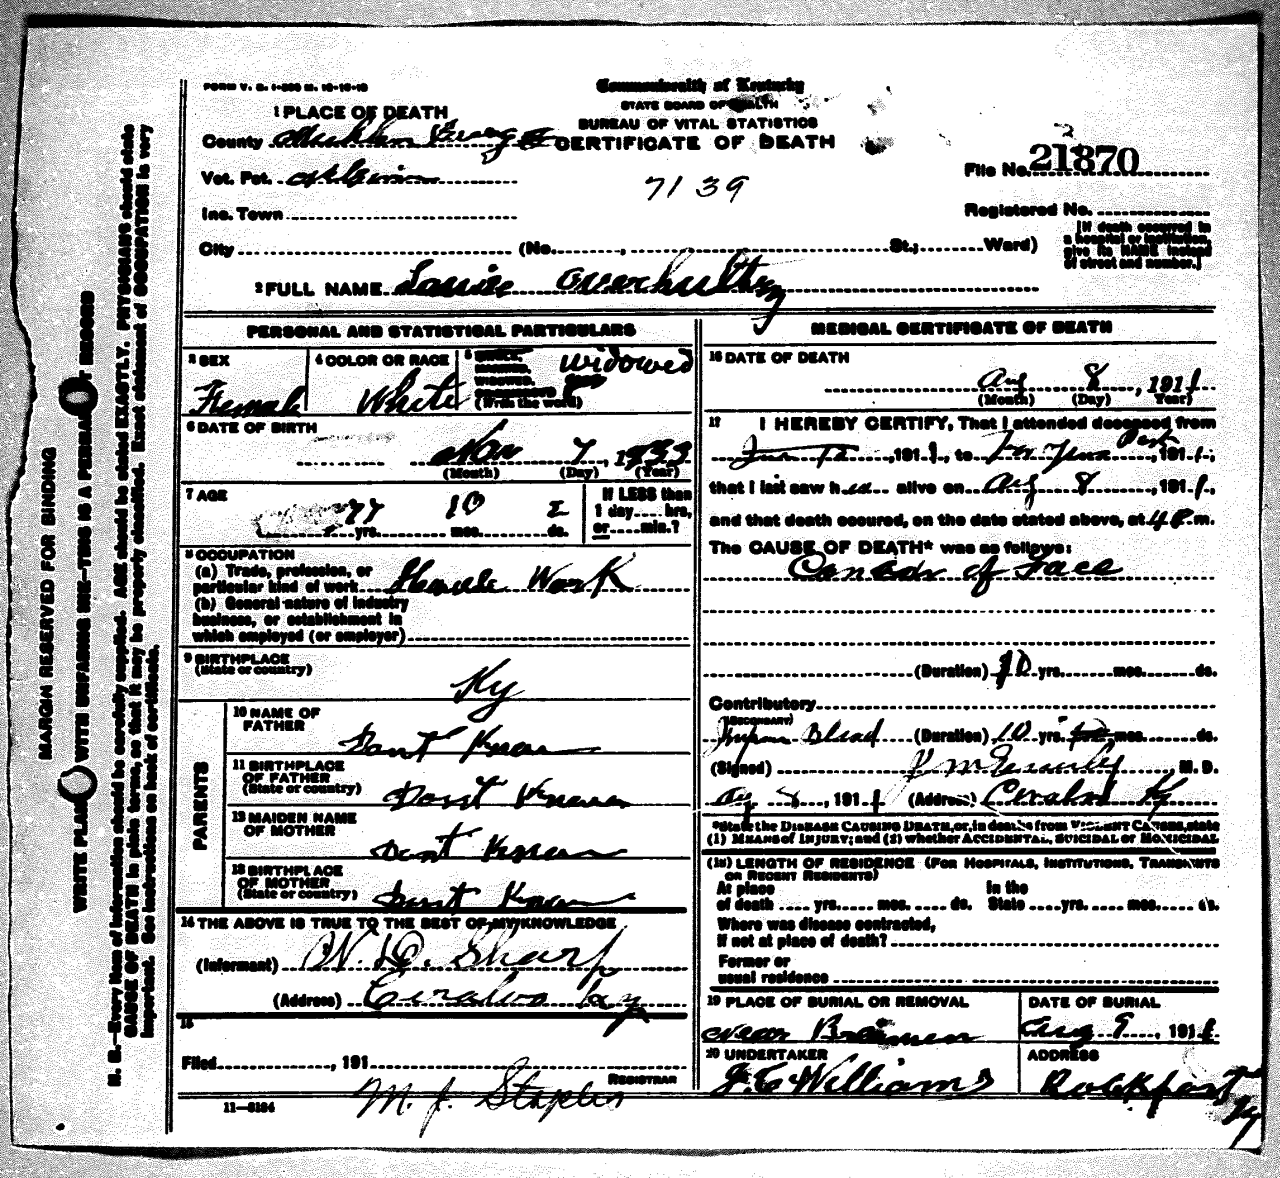 FORM V. S. 1-
Commonwealth of Kentucky
STATE BOARD OF HEALTH
BUREAU OF VITAL STATISTICS
CERTIFICATE OF DEATH
1 PLACE OF DEATH
County
Vot. Pct.
Inc. Town
City (No. , St.; Ward)
7139
File No. 21870
Registered No.
[If death occurred in
a hospital or institution,
give its NAME instead
of street and number.]
2 FULL NAME
PERSONAL AND STATISTICAL PARTICULARS
3 SEX
Female
4 COLOR OR RACE
White
5 SINGLE,
MARRIED,
WIDOWED,
(Write the word)
Widowed
6 DATE OF BIRTH
7, 1833
(Month) (Day) (Year)
7 AGE
77 yrs. 10 mos. 2 ds.
If LESS than
1 day .... hrs.
or .... min.?
8 OCCUPATION
(a) Trade, profession, or
particular kind of work House Work
(b) General nature of industry
business, or establishment in
which employed (or employer)
9 BIRTHPLACE
(State or country)
Ky
PARENTS
10 NAME OF
FATHER
Dont Know
11 BIRTHPLACE
OF FATHER
(State or country)
Dont Know
12 MAIDEN NAME
OF MOTHER
Dont Know
13 BIRTHPLACE
OF MOTHER
(State or country)
Dont Know
14 THE ABOVE IS TRUE TO THE BEST OF MY KNOWLEDGE
(Informant) Sharp
(Address) Ceralvo Ky
15
Filed , 191
REGISTRAR
11-5184
MEDICAL CERTIFICATE OF DEATH
16 DATE OF DEATH
Aug 8, 1911
(Month) (Day) Year)
17 I HEREBY CERTIFY, That I attended deceased from
, 1911, to , 1911,
that I last saw her alive on Aug 8, 1911,
and that death occured, on the date stated above, at 4 P.m.
The CAUSE OF DEATH* was as follows:
Cancer of Face
(Duration) 10 yrs. mos. ds.
Contributory
(SECONDARY)
Blood (Duration) 10 yrs. mos. ds.
(Signed) M. D.
Aug 8, 1911 (Address) Ceralvo Ky
*State the DISEASE CAUSING DEATH, or, in deaths from VIOLENT CAUSES, state
(1) MEANS of INJURY; and (2) whether ACCIDENTAL, SUICIDAL or HOMICIDAL
(18) LENGTH OF RESIDENCE (FOR HOSPITALS, INSTITUTIONS, TRANSIENTS
OR RECENT RESIDENTS)
At place
of death .... yrs. .... mos. .... ds.
In the
State .... yrs. .... mos. .... ds.
Where was disease contracted,
if not at place of death?
Former or
usual residence
19 PLACE OF BURIAL OR REMOVAL
near
DATE OF BURIAL
Aug 9, 1911
20 UNDERTAKER
J. C. Williams
ADDRESS
Rockport Ky
MARGIN RESERVED FOR BINDING
WRITE PLAINLY WITH UNFADING INK—THIS IS A PERMANENT RECORD
N. B.—Every item of information should be carefully supplied. AGE should be stated EXACTLY. PHYSICIANS should state
CAUSE OF DEATH in plain terms, so that it may be properly classified. Exact statement of OCCUPATION is very
important. See instructions on back of certificate.